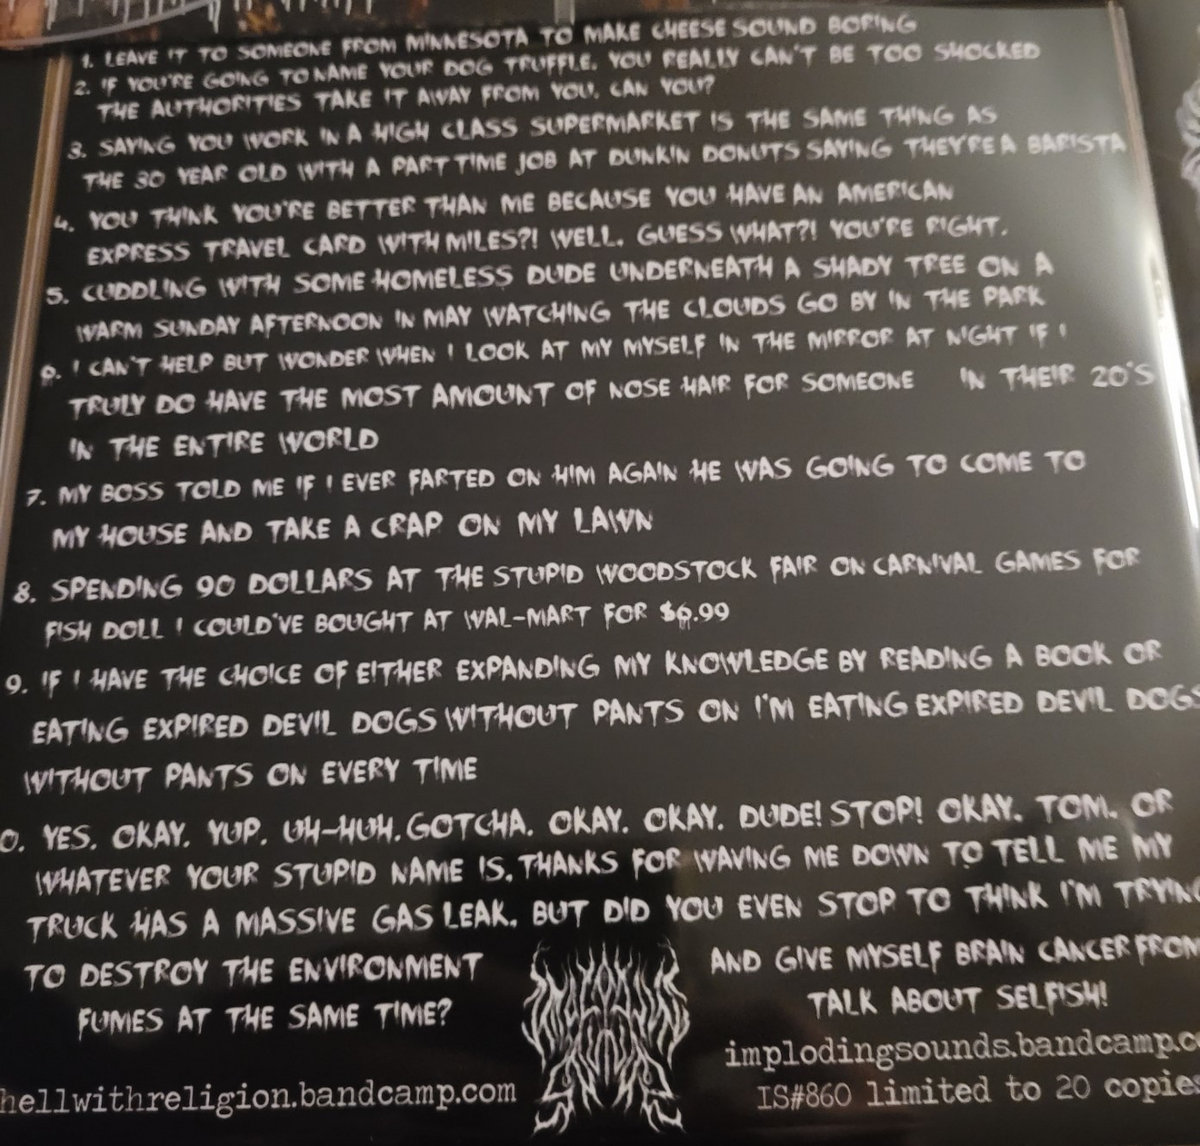 1. LEAVE IT TO SOMEONE FROM MINNESOTA TO MAKE CHEESE SOUND BORING
2. IF YOU'RE GOING TO NAME YOUR DOG TRUFFLE. YOU REALLY CAN'T BE TOO SHOCKED
THE AUTHORITIES TAKE IT AWAY FROM YOU. CAN YOU?
3. SAYING YOU WORK IN A HIGH CLASS SUPERMARKET IS THE SAME THING AS
THE 30 YEAR OLD WITH A PART TIME JOB AT DUNKIN DONUTS SAYING THEY'RE A BARISTA
4. YOU THINK YOU'RE BETTER THAN ME BECAUSE YOU HAVE AN AMERICAN
EXPRESS TRAVEL CARD WITH MILES?! WELL. GUESS WHAT?! YOU'RE RIGHT.
5. CUDDLING WITH SOME HOMELESS DUDE UNDERNEATH A SHADY TREE ON A
WARM SUNDAY AFTERNOON IN MAY WATCHING THE CLOUDS GO BY IN THE PARK
6. I CAN'T HELP BUT WONDER WHEN I LOOK AT MY MYSELF IN THE MIRROR AT NIGHT IF I
TRULY DO HAVE THE MOST AMOUNT OF NOSE HAIR FOR SOMEONE IN THEIR 20'S
IN THE ENTIRE WORLD
7. MY BOSS TOLD ME IF I EVER FARTED ON HIM AGAIN HE WAS GOING TO COME TO
MY HOUSE AND TAKE A CRAP ON MY LAWN
8. SPENDING 90 DOLLARS AT THE STUPID WOODSTOCK FAIR ON CARNIVAL GAMES FOR
FISH DOLL I COULD'VE BOUGHT AT WAL-MART FOR $6.99
9. IF I HAVE THE CHOICE OF EITHER EXPANDING MY KNOWLEDGE BY READING A BOOK OR
EATING EXPIRED DEVIL DOGS WITHOUT PANTS ON I'M EATING EXPIRED DEVIL DOGS
WITHOUT PANTS ON EVERY TIME
0. YES. OKAY. YUP. UH-HUH. GOTCHA. OKAY. OKAY. DUDE! STOP! OKAY. TOM. OR
WHATEVER YOUR STUPID NAME IS. THANKS FOR WAVING ME DOWN TO TELL ME MY
TRUCK HAS A MASSIVE GAS LEAK. BUT DID YOU EVEN STOP TO THINK I'M TRYING
TO DESTROY THE ENVIRONMENT AND GIVE MYSELF BRAIN CANCER FROM
FUMES AT THE SAME TIME? TALK ABOUT SELFISH!
implodingsounds.bandcamp.c
hellwithreligion.bandcamp.com
IS#860 limited to 20 copies